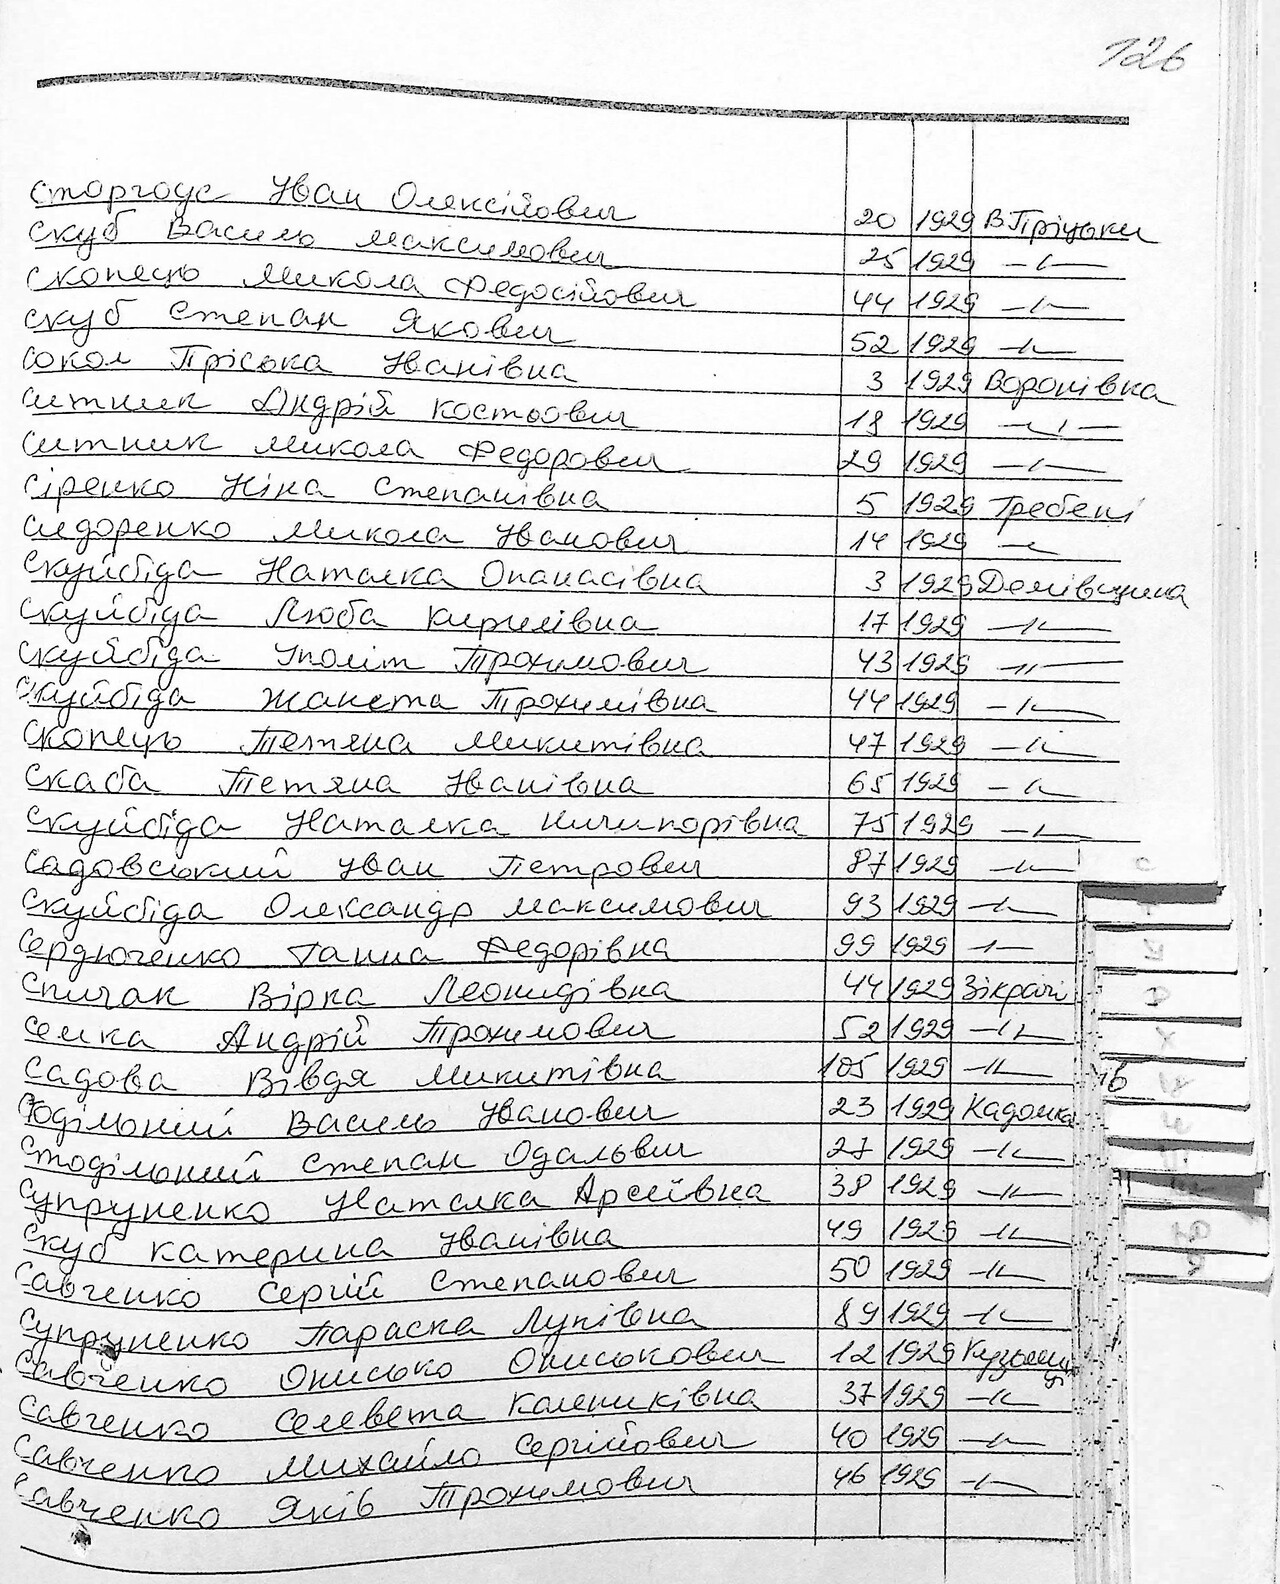 126
Сторчоус Іван Олексійович 20 1929 В Пріцьки
Скуб Василь Максимович 25 1929 -"-
Скопець Микола Федосійович 44 1929 -"-
Скуб Степан Якович 52 1929 -"-
Сокол Пріська Іванівна 3 1929 Воронівка
Ситник Андрій Костьович 18 1929 -"-
Ситник Микола Федорович 29 1929 -"-
Сіренко Ніна Степанівна 5 1929 Гребені
Сидоренко Микола Іванович 14 1929 -"-
Скуйбіда Наталка Опанасівна 3 1929 Демівщина
Скуйбіда Люба Кирилівна 17 1929 -"-
Скуйбіда Іполіт Трохимович 43 1929 -"-
Скуйбіда Жанета Трохимівна 44 1929 -"-
Скопець Тетяна Микитівна 47 1929 -"-
Скаба Тетяна Іванівна 65 1929 -"-
Скуйбіда Наталка Ничипорівна 75 1929 -"-
Садовський Іван Петрович 87 1929 -"-
Скуйбіда Олександр Максимович 93 1929 -"-
Сердюченко Ганна Федорівна 99 1929 -"-
Спичак Вірка Леонидівна 44 1929 Зікрачі
Семка Андрій Трохимович 52 1929 -"-
Садова Вівдя Микитівна 105 1929 -"-
Стодільний Василь Іванович 23 1929 Кадомка
Стодільний Степан Одальвич 27 1929 -"-
Супруненко Наталка Арсеївна 38 1929 -"-
Скуб Катерина Іванівна 49 1929 -"-
Савченко Сергій Степанович 50 1929 -"-
Супруненко Параска Лупівна 89 1929 -"-
Савченко Онисько Ониськович 12 1929 Кузьминці
Савченко Селевета Калениківна 37 1929 -"-
Савченко Михайло Сергійович 40 1929 -"-
Савченко Яків Трохимович 46 1929 -"-